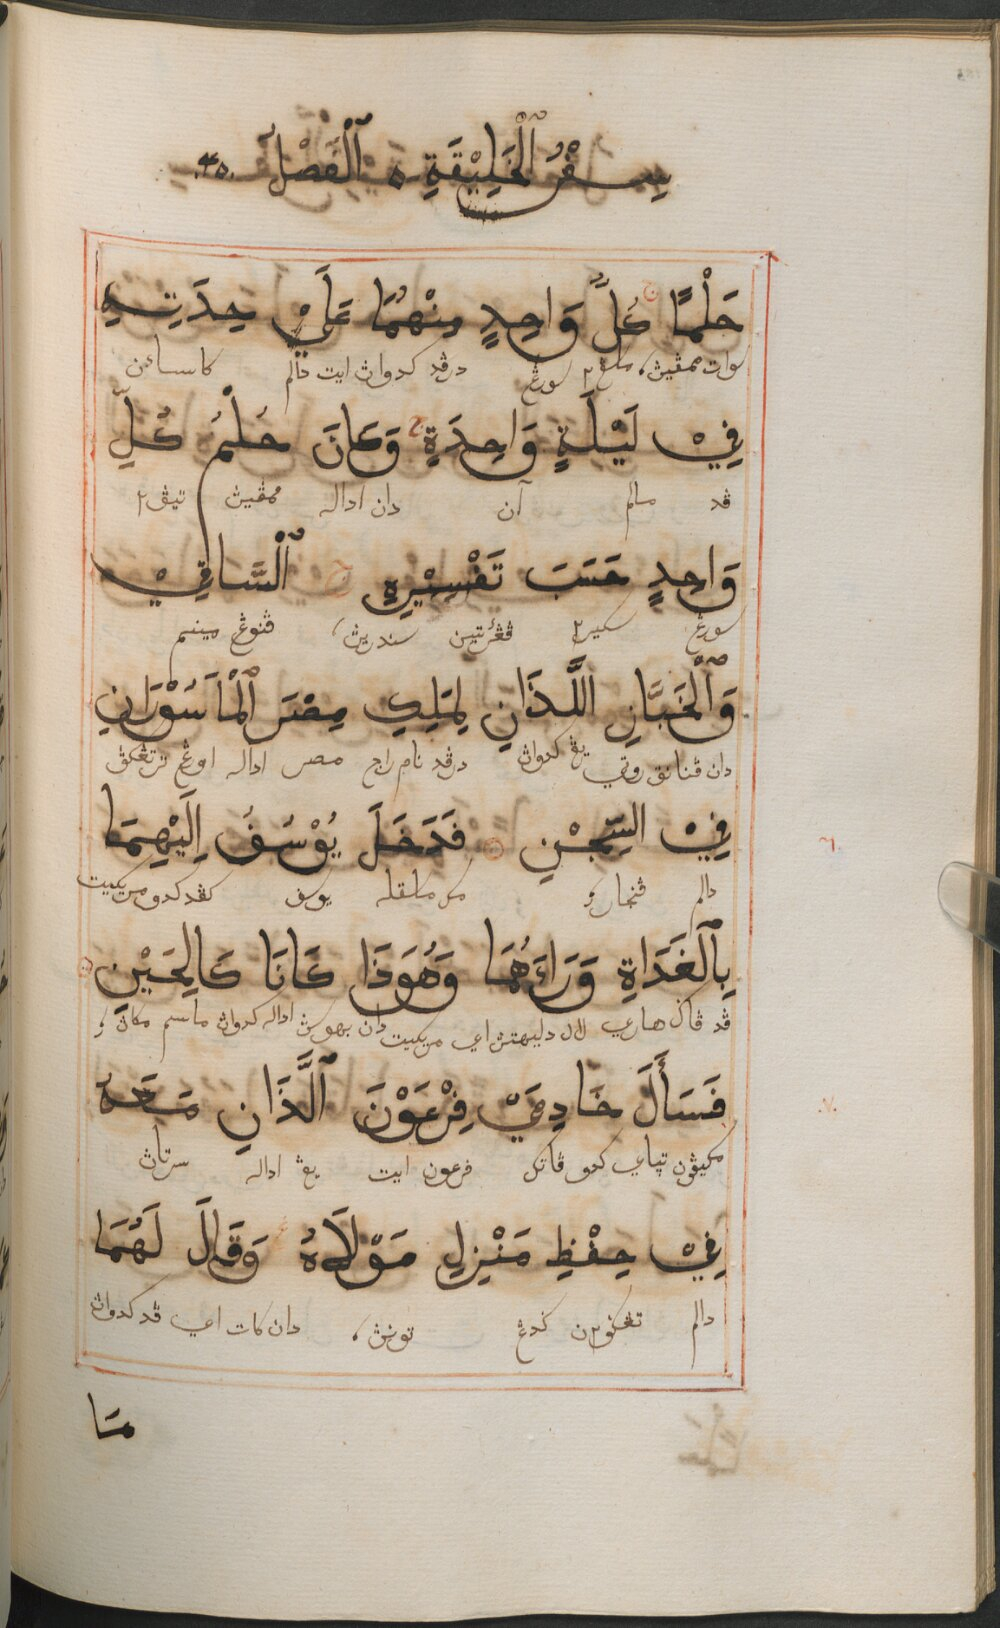 سِفْرُ ٱلْخَلِيْقَةِ ٥ ٱلْفَصْلُ .٤٠.
حَلْمًا كُلُّ وَاحِدٍ مِنْهُمَا عَلَيْ حِدَتِهِ
سورڠ درڤد كدواڽ ايت مالم
فِيْ لَيْلَةٍ وَاحِدَةٍ وَكَانَ حُلْمُ كُلِّ
ڤد مالم آن دان اداله ممڤيڽ تيڤ٢
وَاحِدٍ حَسَبَ تَفْسِيْرِهِ ٱلْسَّاقِيْ
سورڠ سكير٢ ڤڠرتين سنديريڽ، ڤنوڠ مينم
وَٱلْخَبَّازِ اللَّذَانِ لِمَلِكِ مِصْرَ ٱلْمَاسُوْرَانِ
دان ڤناتق روتي يڠ كدواڽ درڤد راج مصر اداله اورڠ ترتڠكڤ
فِيْ السِّجْنِ فَدَخَلَ يُوْسُفُ إِلَيْهِمَا
دالم ڤنجار مك ماسقله يوسف كڤد كدو مريكيت
بِٱلْغَدَاةِ وَرَاءَهُمَا وَهُوَذَا كَانَا كَالِحَيْنِ
ڤد ڤاڬي هاري لال دليهتڽ اي مريكيت دان بهوسڽ اداله كدواڽ ماسم مكاڽ
فَسَأَلَ خَادِمَيْ فِرْعَوْنَ ٱلَّذَانِ مَعَهُ
مكيڤون تياي كدو فرعون ايت يڠ اداله سرتاڽ
فِيْ حِفْظِ مَنْزِلِ مَوْلَاهُ وَقَالَ لَهُمَا
دالم تڠكو٢ن ڬدڠ تونڽ، دان كات اي ڤد كدواڽ
مَا